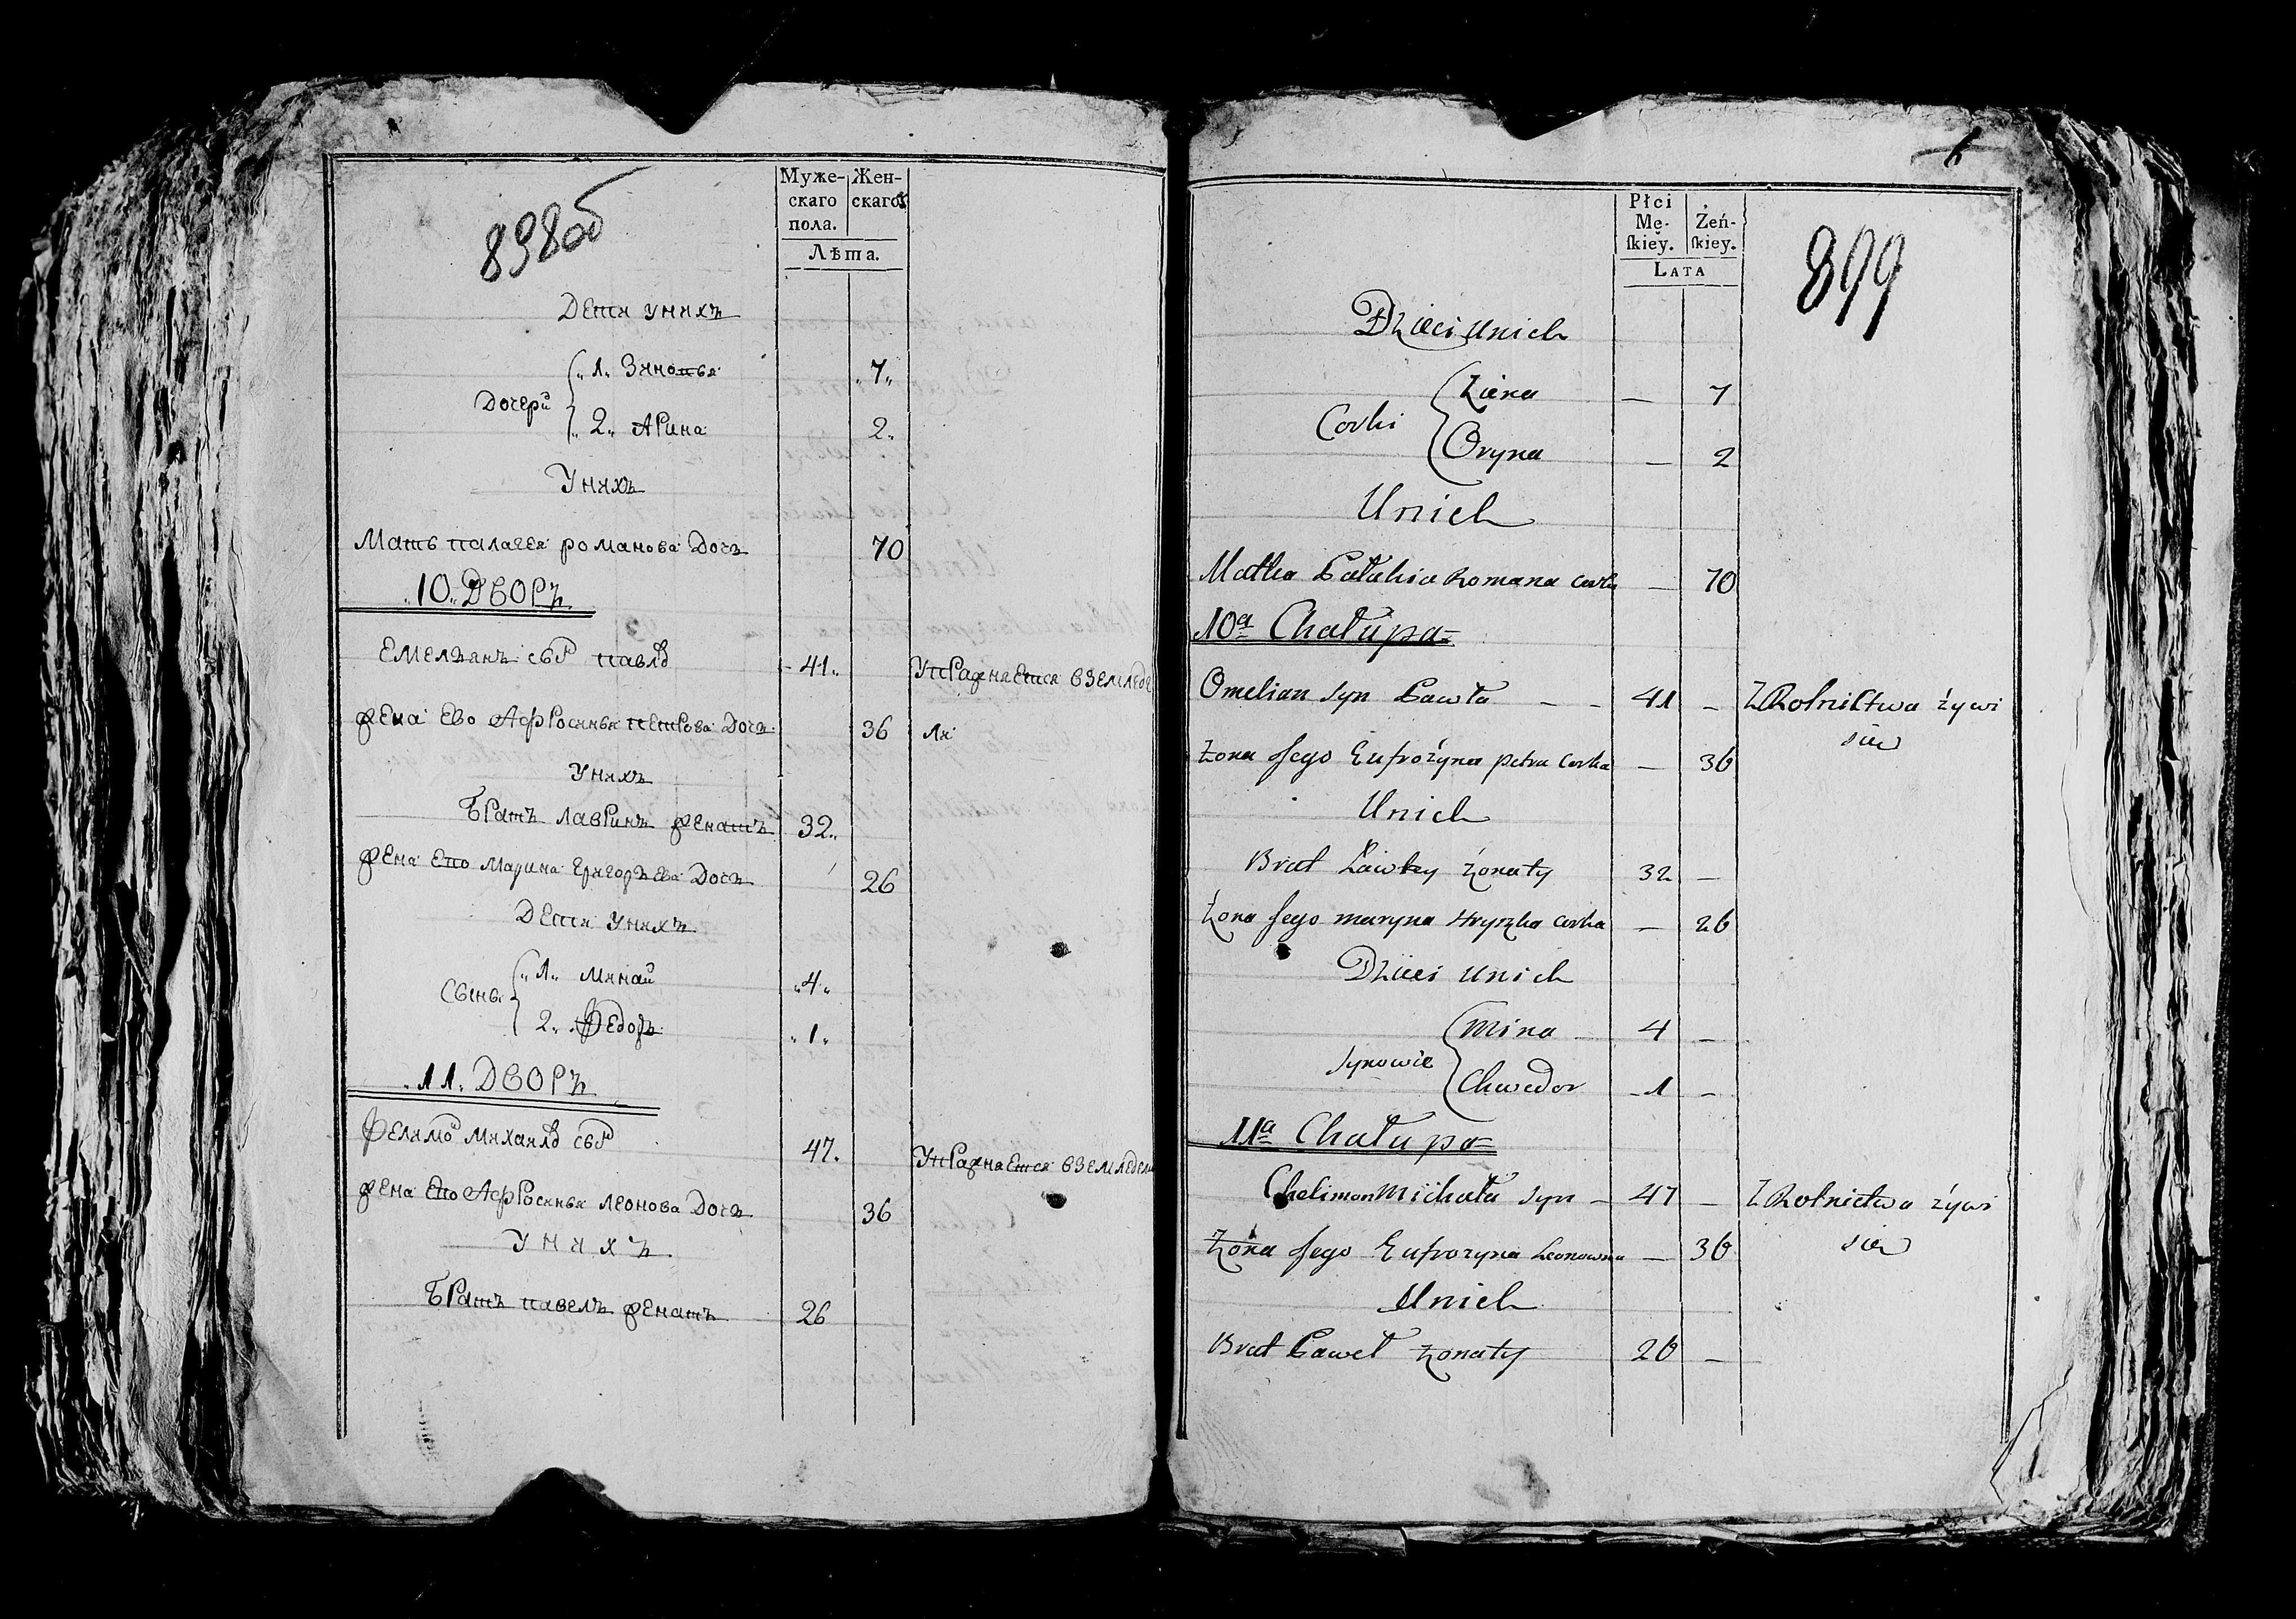 898об
Муже-
скаго
пола.
Жен-
скаго
Лѣта.
Дети уних
Дочери
1 Зиновья 7
2 Арина 2
Уних
Мать палагея романова Дочь 70
10 Дворъ
Емельянъ сынъ павлов 41 Упражняется вземледе
жена Ево Афросинья петрова Дочь 36 ли
Унихъ
Братъ лавринъ женатъ 32
жена Ево Марина григорьева Дочь 26
Дети Унихъ
Сыны
1 Минай 4
2 Федоръ 1
11 Дворъ
Фелимон михайлов сынъ 47 Упражняется вземледели
жена Ево Афросинья леонова Дочь 36
Унихъ
Братъ павелъ женатъ 26
899
Płci
Mę-
ſkiey.
Żeń-
ſkiey.
LATA
Dzieci unich
Corki
Ziena — 7
Oryna — 2
Unich
Matka Pałahia Romana Corka — 70
10a Chałupa
Omelian syn Pawła 41 — Z Rolnictwa żywi
sie
Żona Jego Eufrożyna Petra Corka — 36
Unich
Brat Ławrey Żonaty 32 —
Żona Jego maryna Hryszka Corka — 26
Dzieci unich
Synowie
Mina 4 —
Chwedor 1 —
11a Chałupa
Chelimon Michała syn 47 — Z Rolnictwa żywi
sie
Żona Jego Eufrozyna Leonowna — 36
Unich
Brat Paweł żonaty 26 —